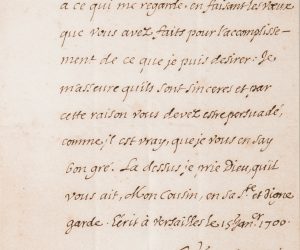 a ce qui me regarde, en faisant les vœux
que vous avez faits pour l'accomplisse-
ment de ce que je puis desirer. Je,
m'asseure qu'ils sont sinceres et par
cette raison vous devez estre persuadé,
comme, il est vray, que je vous en sçay
bon gré. La dessus je prie Dieu, qu'il
vous ait, Mon Cousin, en sa S.te et digne
garde. Ecrit à Versailles le 15 Janr. 1700.